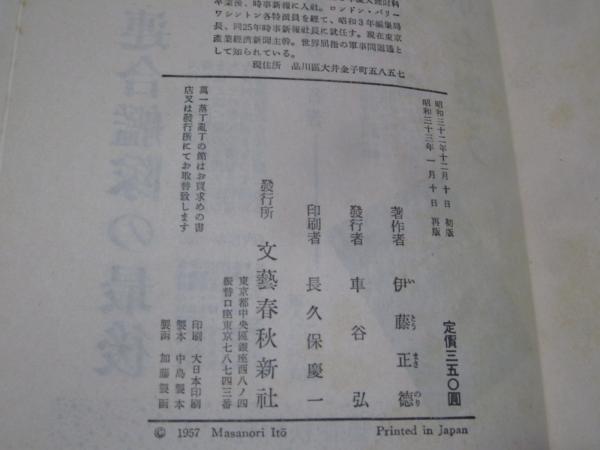 卒業後、時事新報に入社。ロンドン・パリ・
ワシントン各特派員を經て、昭和3年編集局
長、同25年時事新報社長に就任す。現在東京
産業經濟新聞主幹。世界屈指の軍事問題通と
して知られている。
現住所 品川區大井金子町五八五七
昭和三十二年十二月十日 初版
昭和三十三年一月十日 再版
定價三五〇圓
著作者 伊藤正德
とう まさ のり
發行者 車谷弘
印刷者 長久保慶一
發行所 文藝春秋新社
東京都中央區銀座西八ノ四
振替口座東京七八七四三番
印刷 大日本印刷
製本 中島製本
製函 加藤製函
萬一落丁亂丁の節はお買求めの書
店又は發行所にてお取替致します
© 1957 Masanori Itō
Printed in Japan
連合艦隊の最後